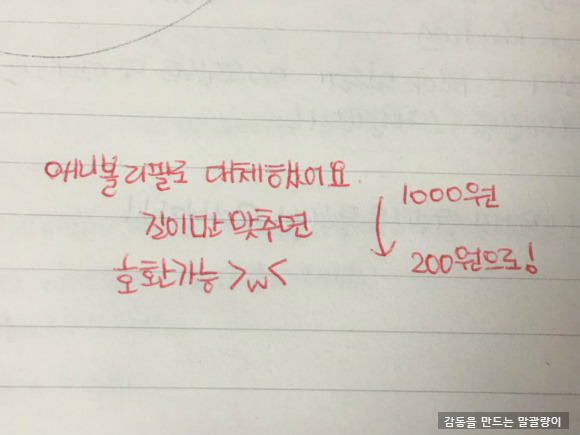 애니볼 리필로 대체했어요.
길이만 맞추면
호환가능 >w<
1000원
↓
200원으로!
감동을 만드는 말괄량이